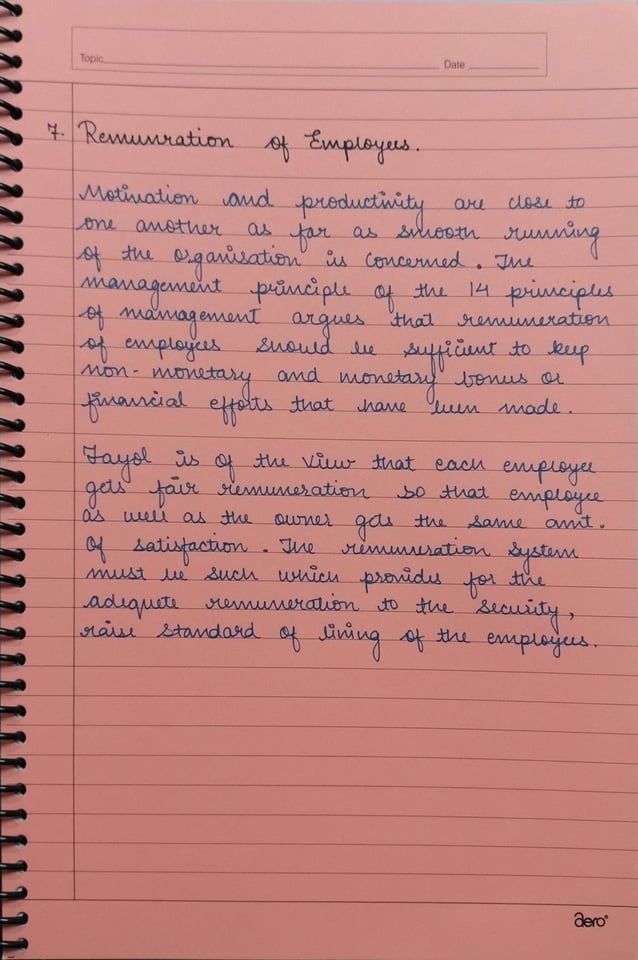 Topic
Date
7. Remunration of Employees.
Motivation and productivity are close to
one another as far as smooth running
of the organisation is concerned. The
management principle of the 14 principles
of management argues that remuneration
of employees should be sufficient to keep
non-monetary and monetary bonus or
financial efforts that have been made.
Fayol is of the view that each employee
gets fair remuneration so that employee
as well as the owner gets the same amt.
of satisfaction. The remuneration system
must be such which provides for the
adequete remuneration to the security,
raise standard of living of the employees.
aero